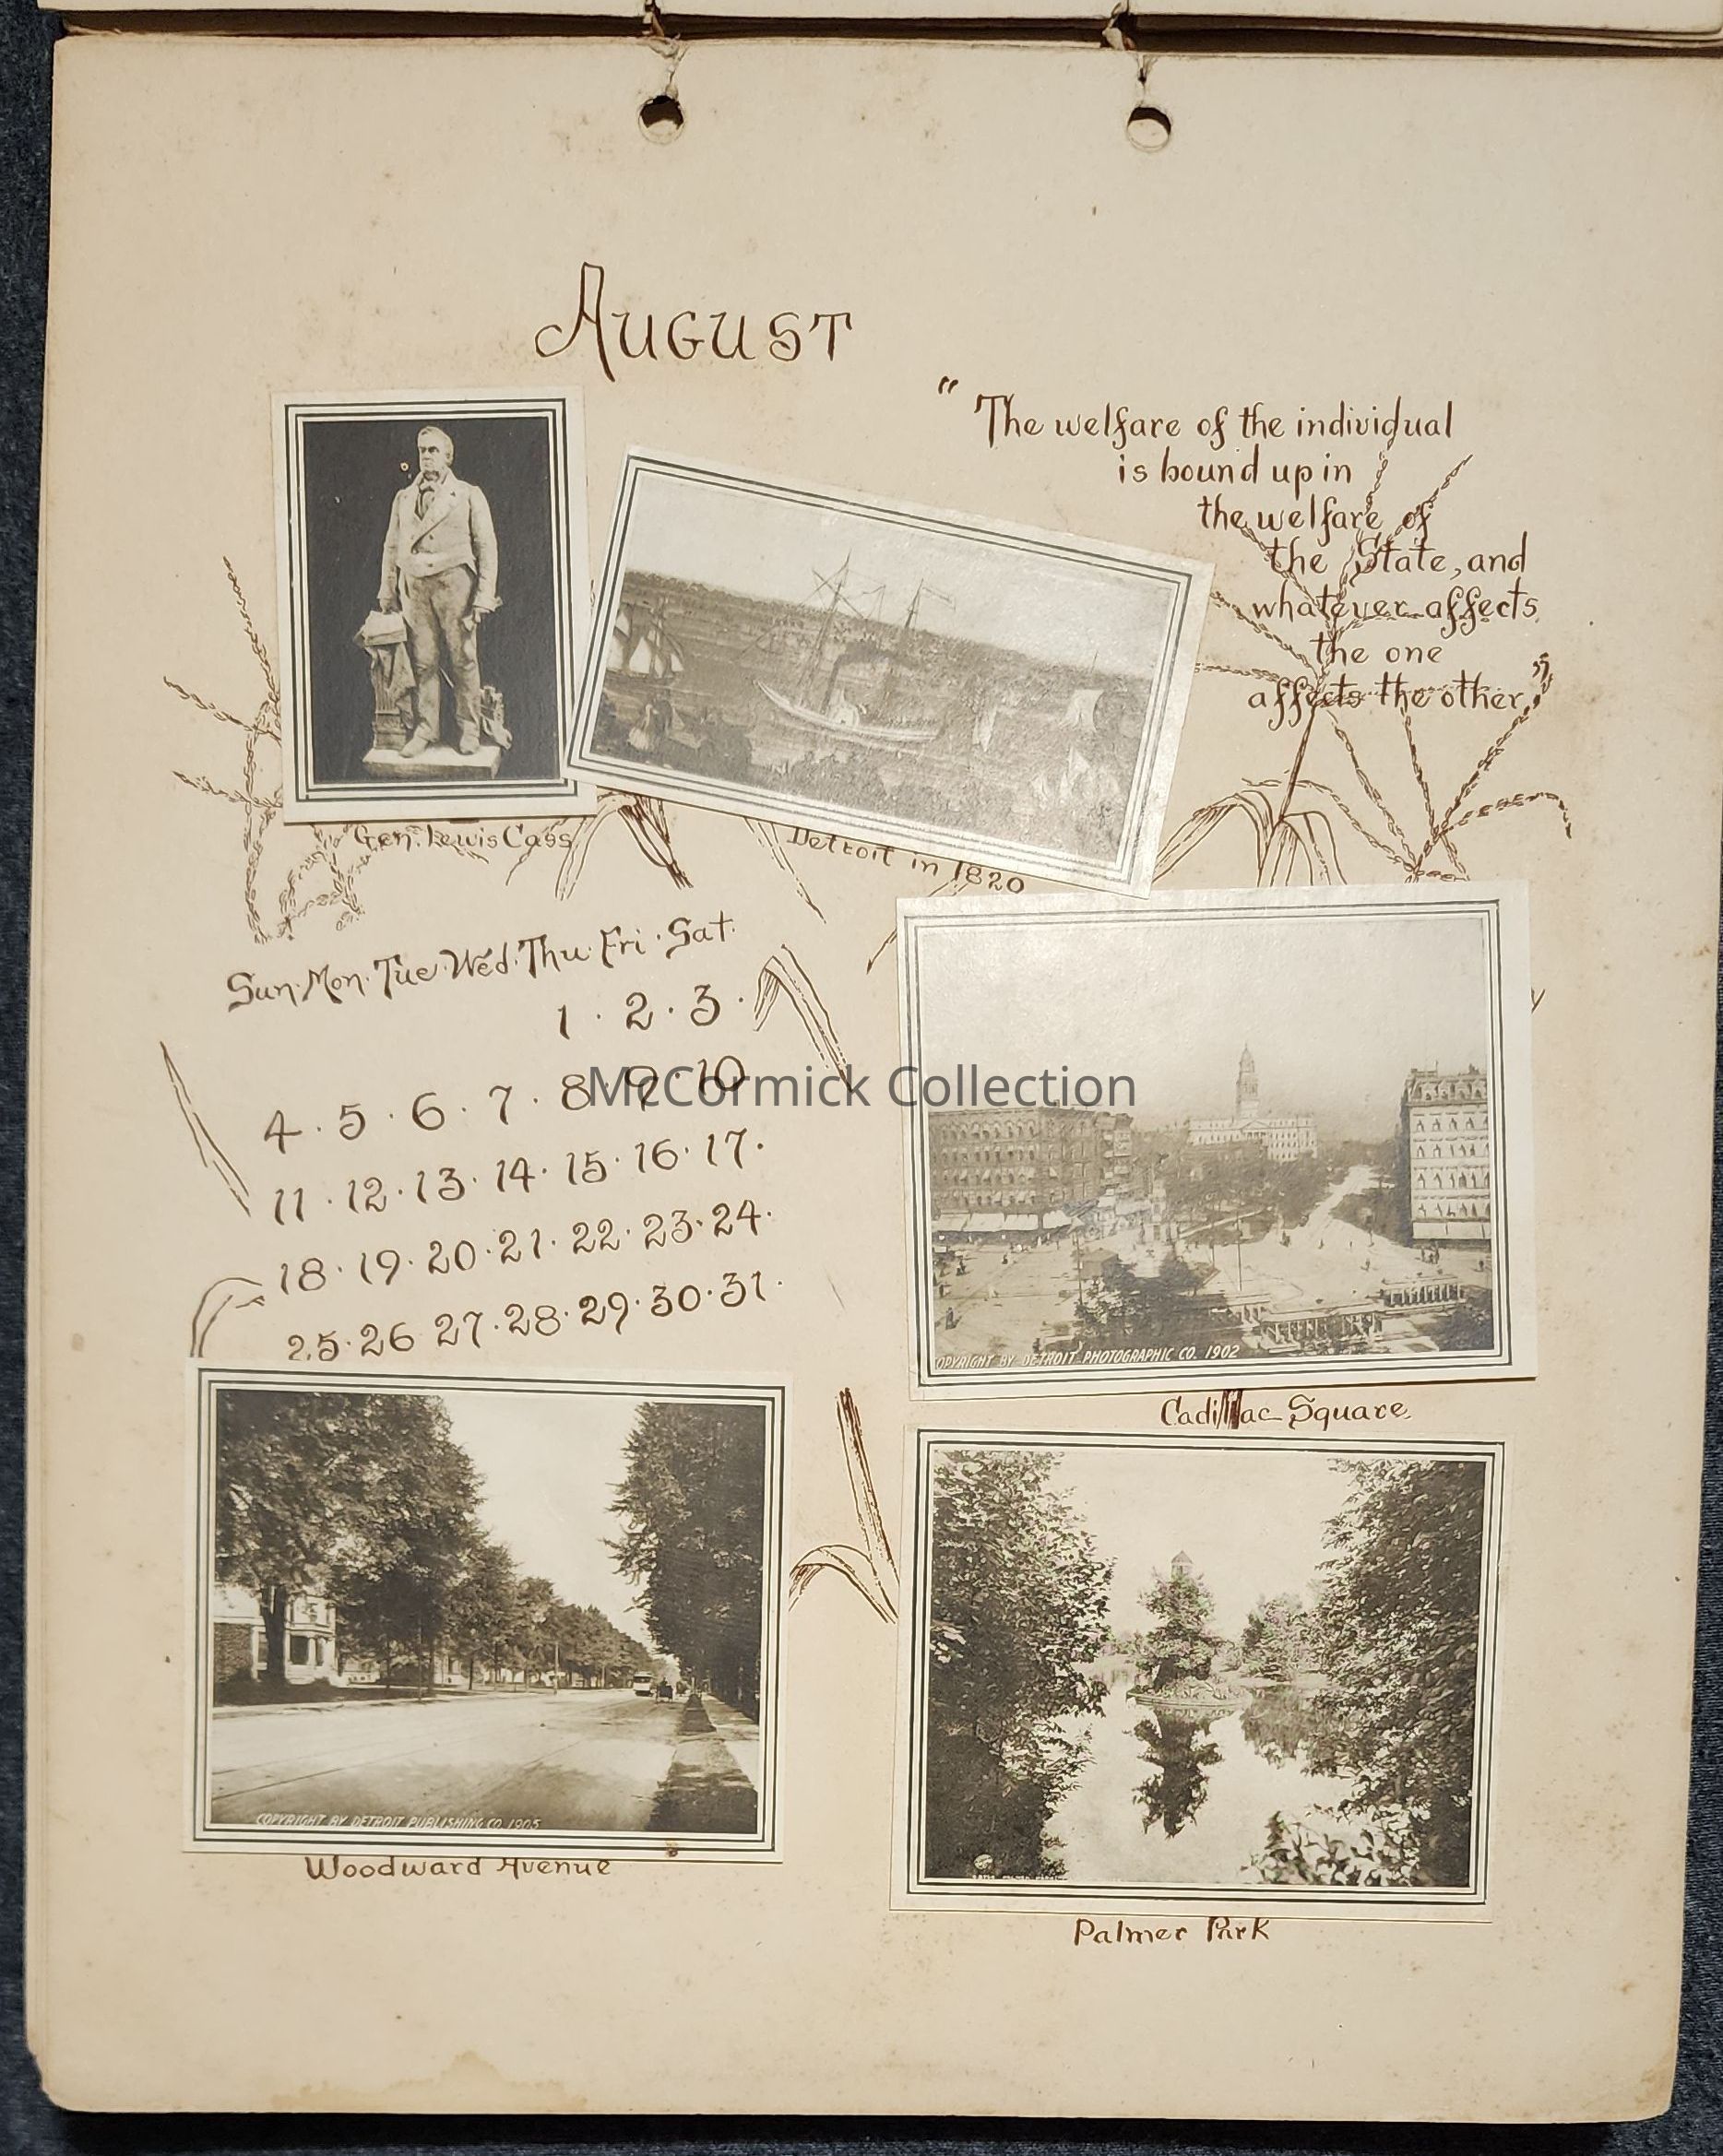 AUGUST
" The welfare of the individual
is bound up in
the welfare of
the State, and
whatever affects
the one
affects the other."
Gen. Lewis Cass
Detroit in 1820
Sun. Mon. Tue. Wed. Thu. Fri. Sat.
1 . 2 . 3 .
4 . 5 . 6 . 7 . 8 . 9 . 10
McCormick Collection
11 . 12 . 13 . 14 . 15 . 16 . 17 .
18 . 19 . 20 . 21 . 22 . 23 . 24 .
25 . 26 27 . 28 . 29 . 30 . 31 .
COPYRIGHT BY DETROIT PHOTOGRAPHIC CO. 1902
Cadillac Square.
COPYRIGHT BY DETROIT PUBLISHING CO 1905
Woodward Avenue
Palmer Park